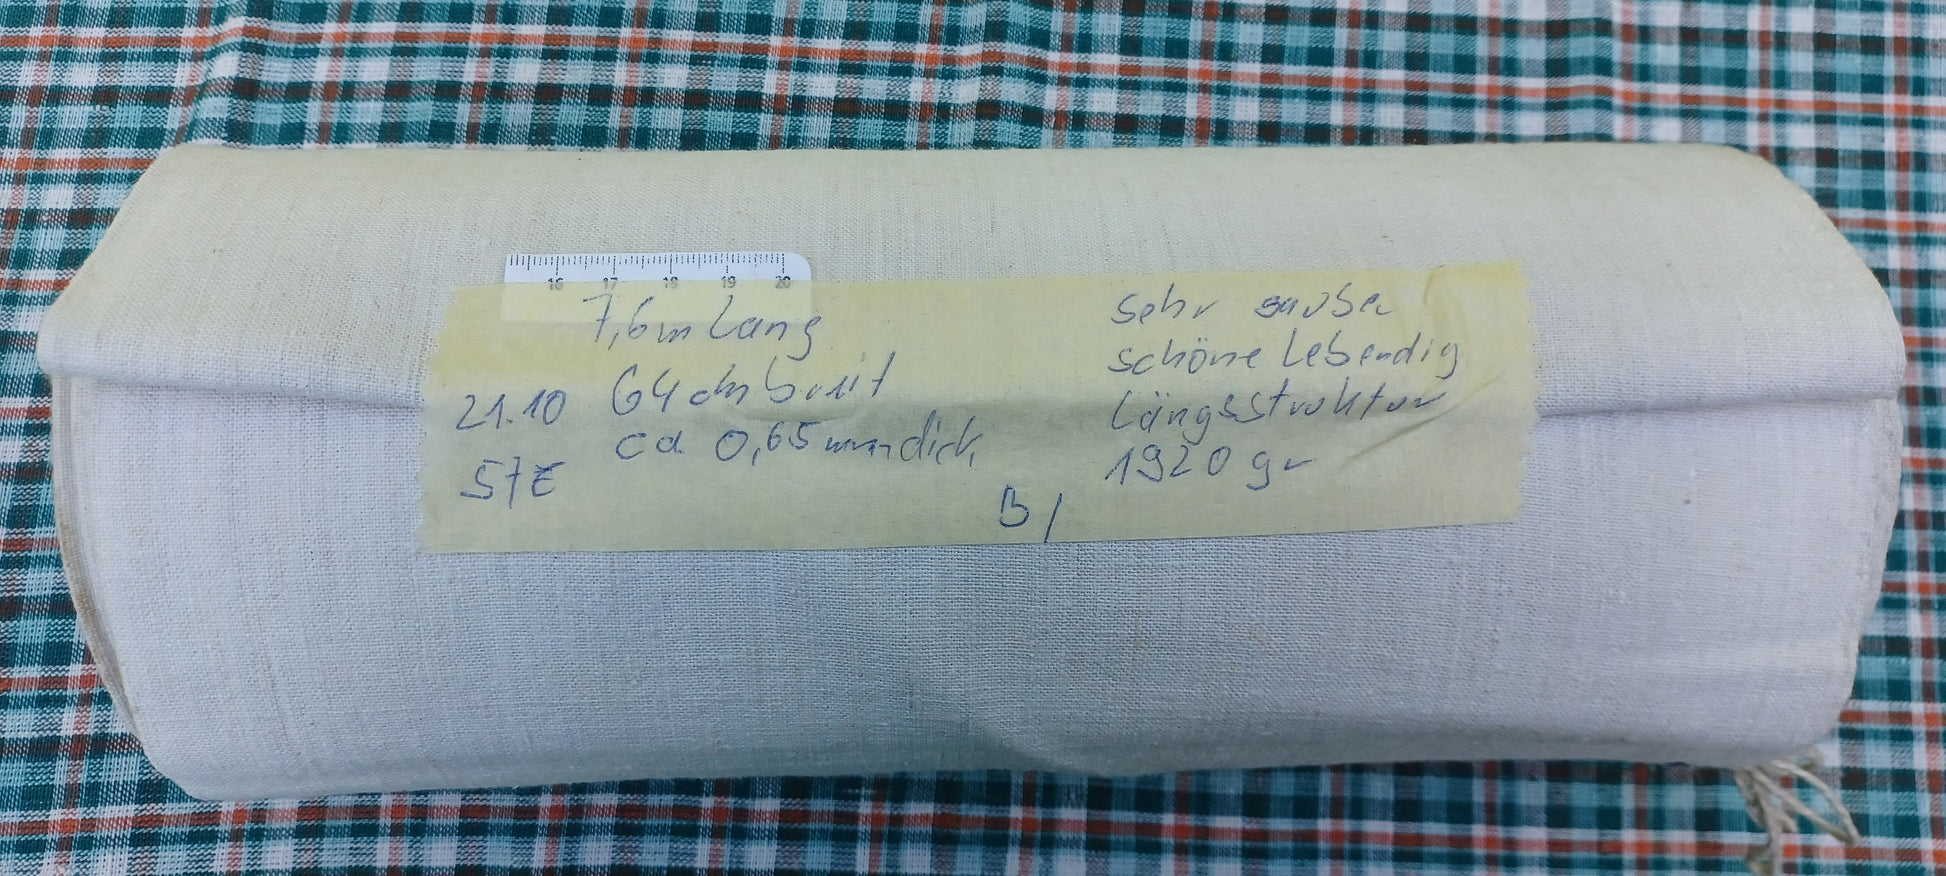 16 17 18 19 20
7,6m lang
64 cm breit
ca 0,65 mm dick
21.10
STE
sehr sauber
schöne Lebendig
Längsstruktur
1920 gr
B/